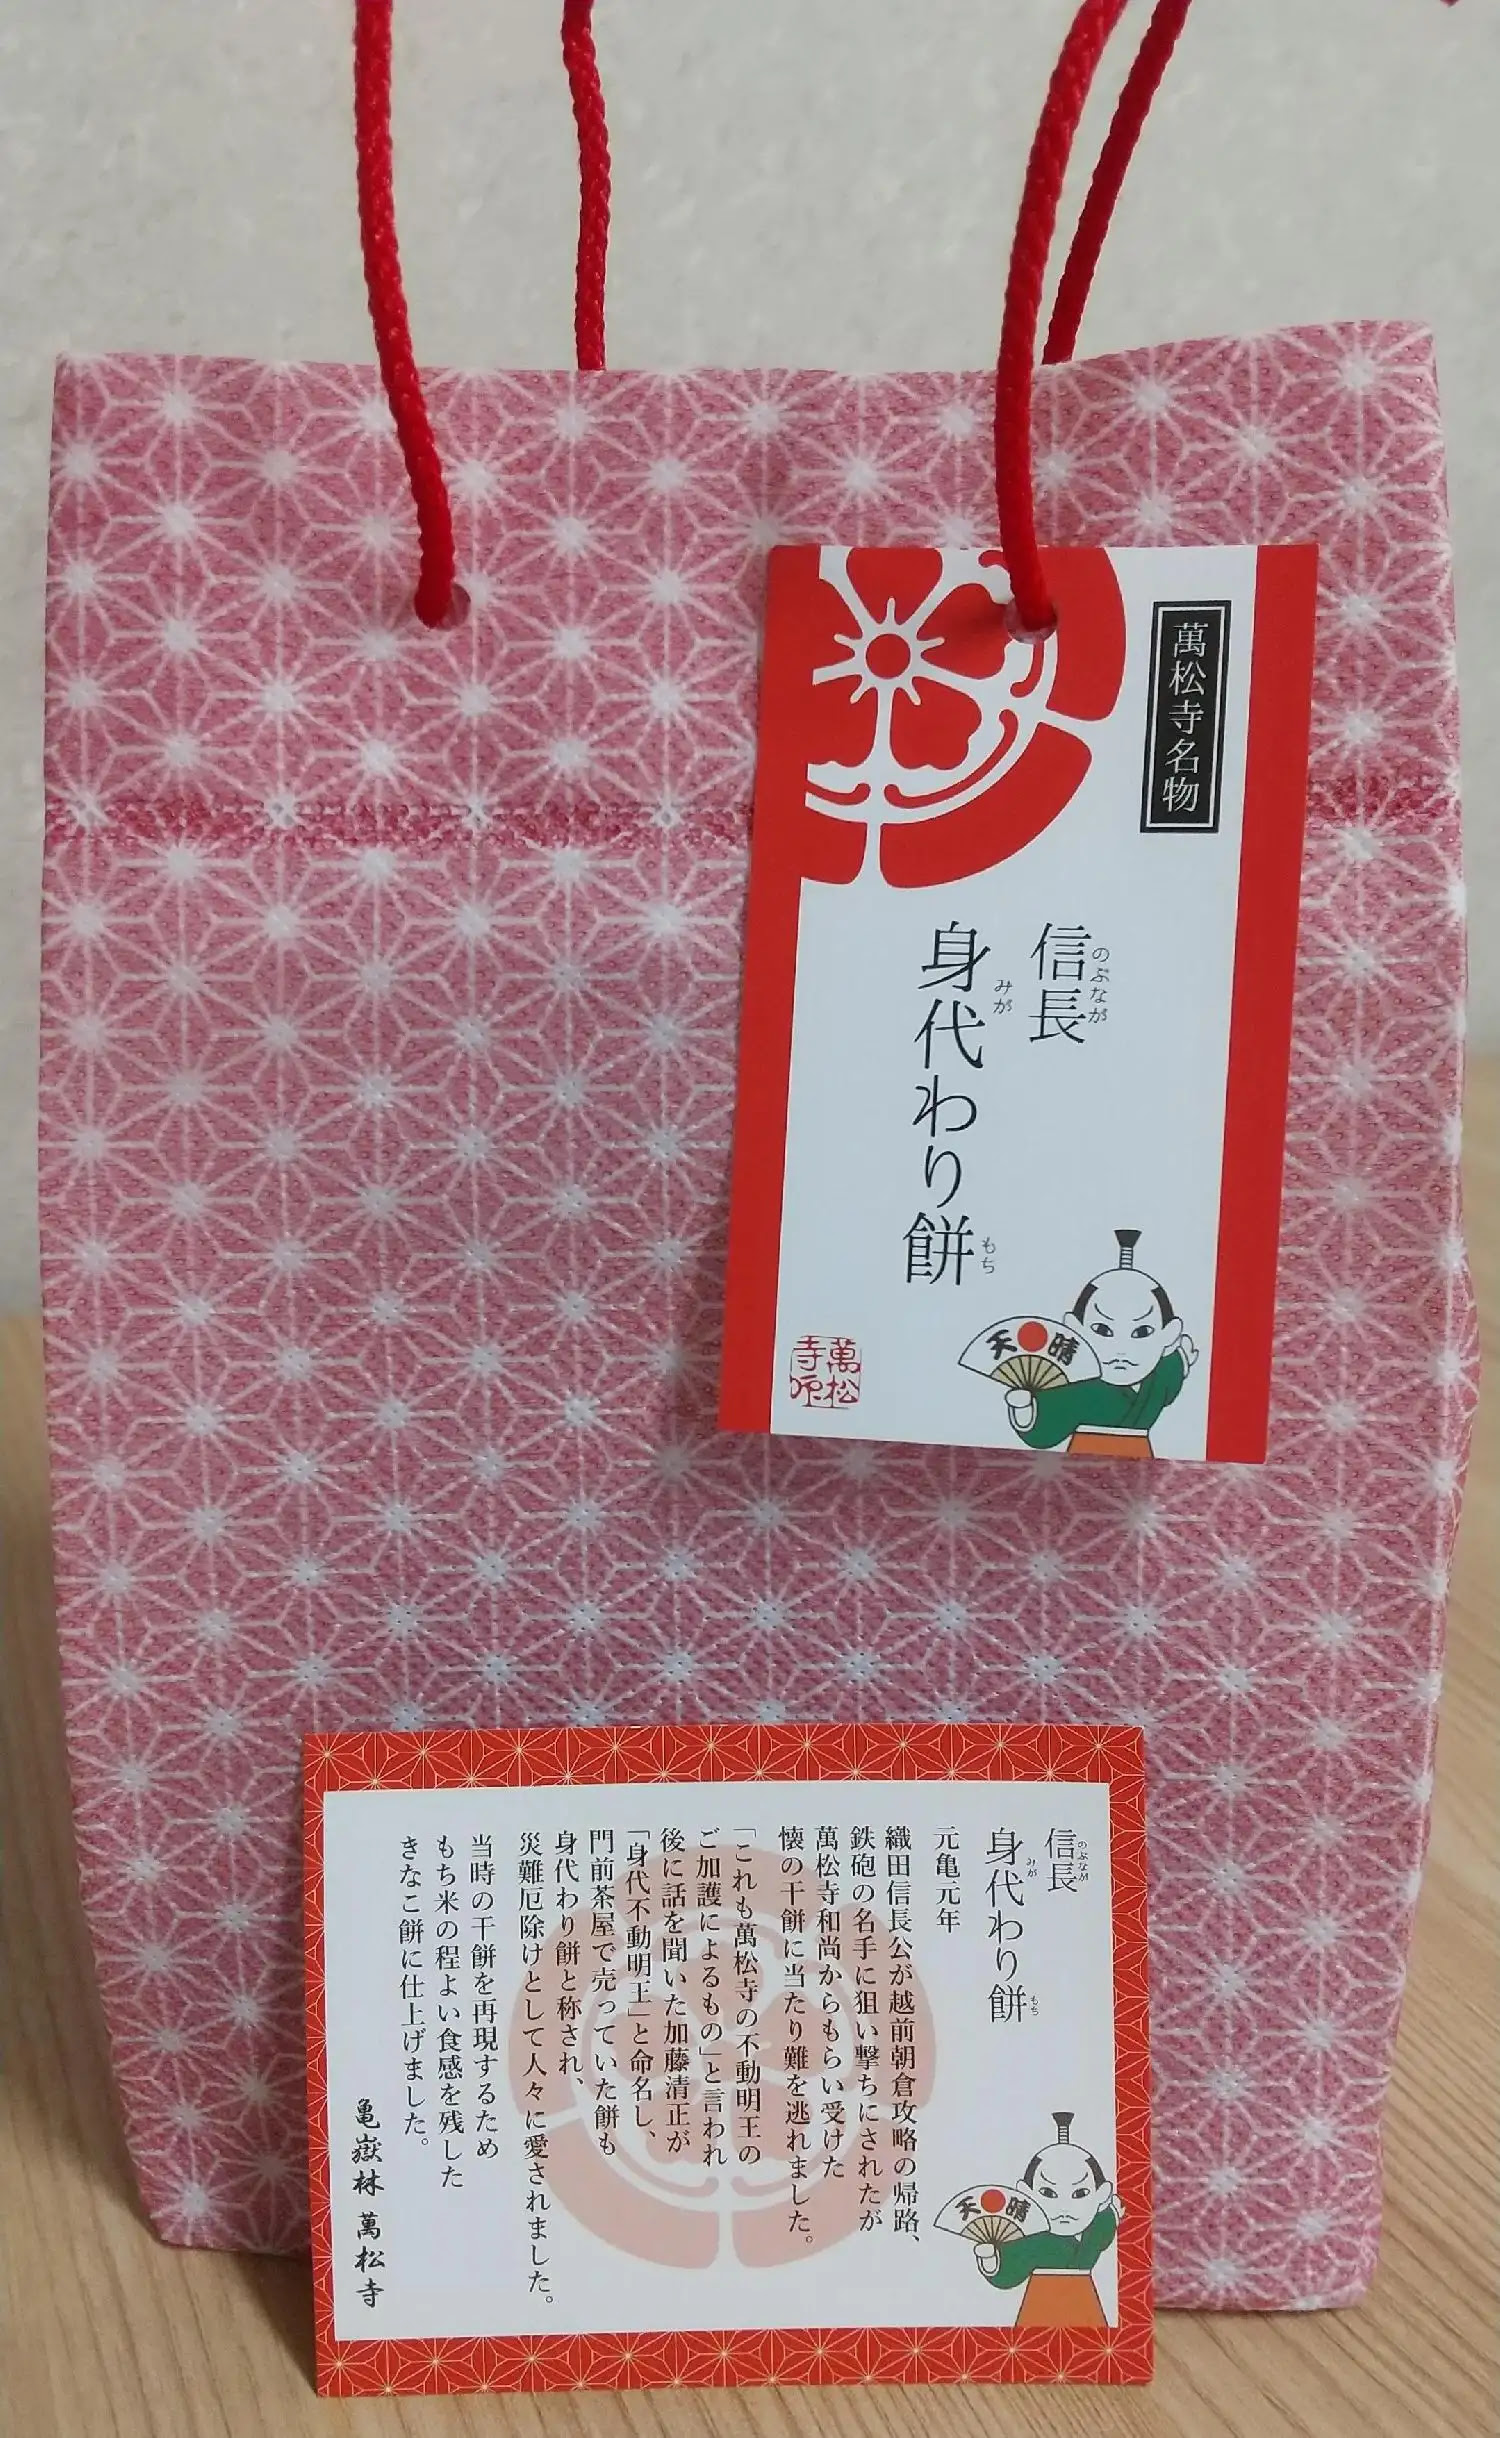 萬松寺名物
信長
のぶなが
身代わり餅
みが
もち
天晴
萬松
寺印
信長
のぶなが
身代わり餅
みが
もち
元亀元年
織田信長公が越前朝倉攻略の帰路、
鉄砲の名手に狙い撃ちにされたが
萬松寺和尚からもらい受けた
懐の干餅に当たり難を逃れました。
「これも萬松寺の不動明王の
ご加護によるもの」と言われ
後に話を聞いた加藤清正が
「身代不動明王」と命名し、
門前茶屋で売っていた餅も
身代わり餅と称され、
災難厄除けとして人々に愛されました。
当時の干餅を再現するため
もち米の程よい食感を残した
きなこ餅に仕上げました。
亀嶽林 萬松寺
天晴